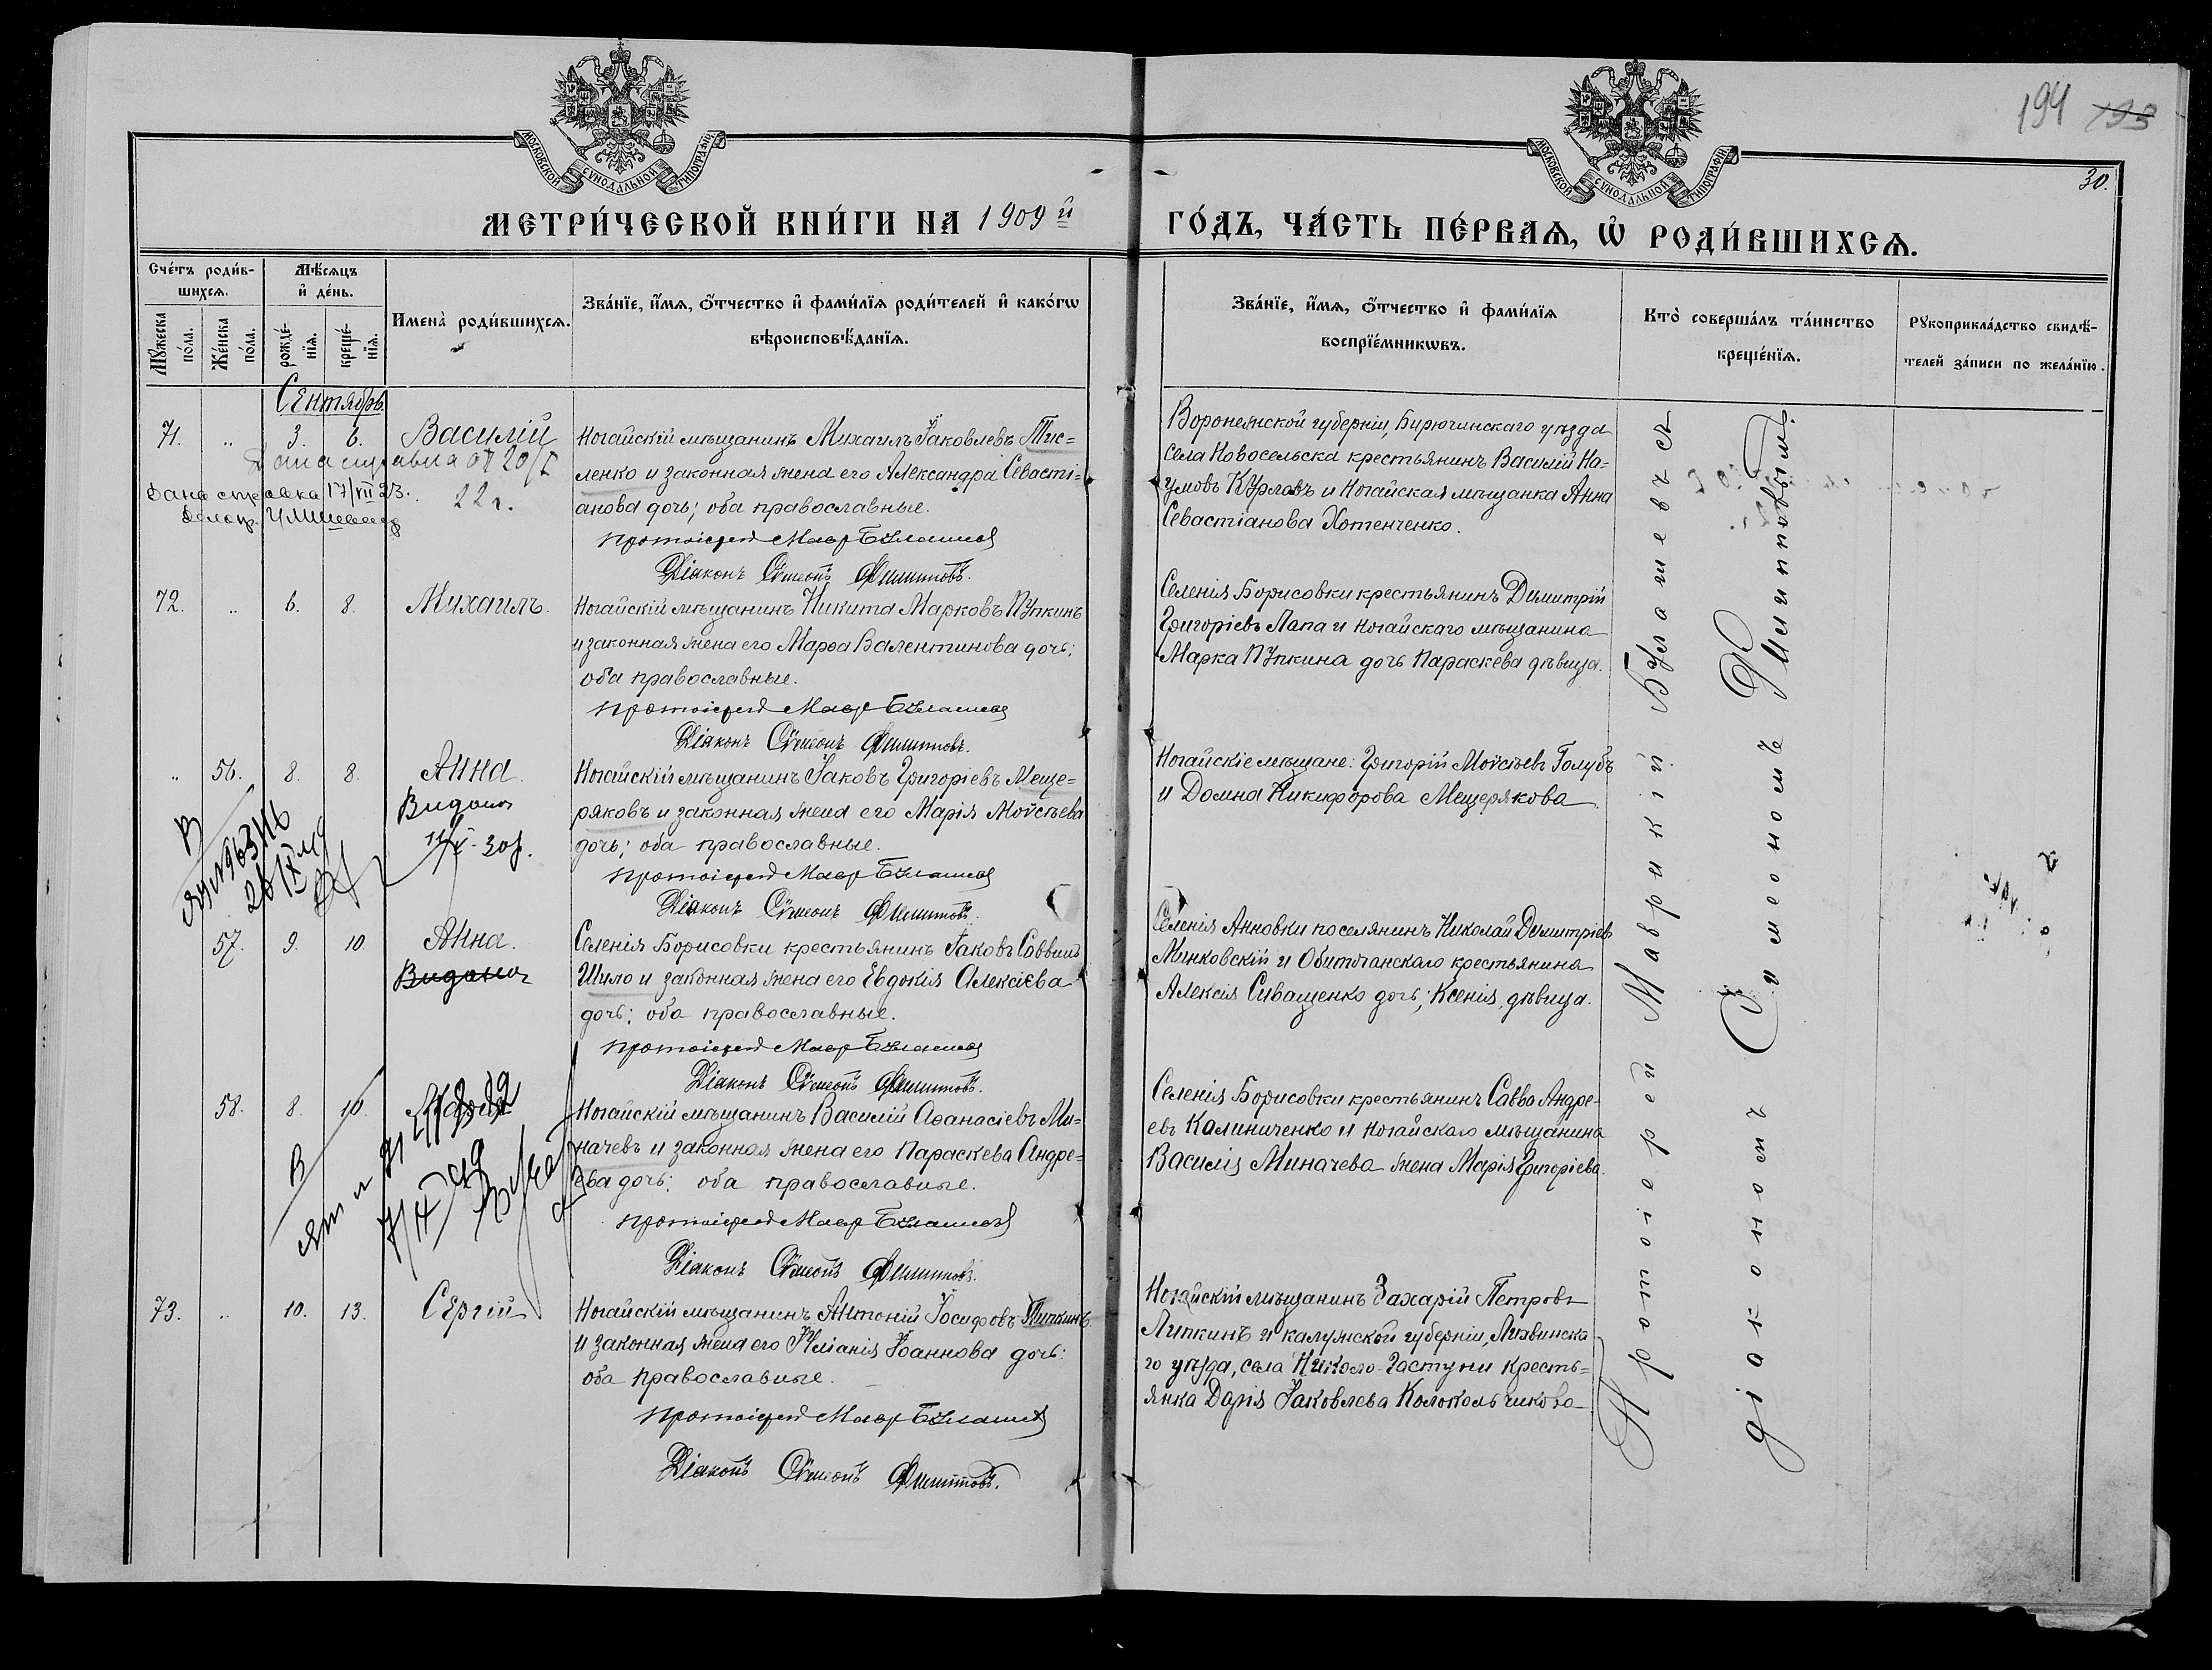 МОСКОВСКОЙ СѴНОДАЛЬНОЙ ТИПОГРАФІИ
МОСКОВСКОЙ СѴНОДАЛЬНОЙ ТИПОГРАФІИ
194 193
30.
МЕТРИ́ЧЕСКОЙ КНИ́ГИ НА 1909й
ГО́ДЪ, ЧА́СТЬ ПЕ́РВАѦ, Ѡ҆ РОДИ́ВШИХСѦ.
Сче́тъ роди́в-
шихсѧ.
Мꙋ́жеска по́ла.
Же́нска по́ла.
Мѣ́сѧцъ
и҆ де́нь.
рожде́-
нїѧ.
креще́-
нїѧ.
Имена̀ роди́вшихсѧ.
Зва́нїе, и҆́мѧ, ѻ҆́тчество и҆ фами́лїѧ роди́телей и҆ како́гѡ
вѣроисповѣ́данїѧ.
Зва́нїе, и҆́мѧ, ѻ҆́тчество и҆ фами́лїѧ
воспрїе́мникѡвъ.
Кто̀ соверша́лъ та́инство
креще́нїѧ.
Рꙋкоприкла́дство свидѣ́-
телей за́писи по жела́нїю.
Сентябрь.
71. „ 3. 6. Василій
Дана справка от 20/I
22 г.
Дана справка 17/VII 23.
Ногайскій мѣщанинъ Михаилъ Іаковлевъ Тис=
ленко и законная жена его Александра Севасті=
анова дочь; оба православные.
Протоіерей Мавр Булашев
Діаконъ Сѵмеонъ Филипповъ.
Воронежской губерніи, Бирючинскаго уѣзда
села Новосельска крестьянинъ Василій На=
умовъ Курлавъ и Ногайская мѣщанка Анна
Севастіанова Хотенченко.
72. „ 6. 8. Михаилъ.
Ногайскій мѣщанинъ Никита Марковъ Пупкинъ
и законная жена его Марѳа Валентинова дочь;
оба православные.
Протоіерей Мавр Булашев
Діаконъ Сѵмеонъ Филипповъ.
Селенія Борисовки крестьянинъ Димитрій
Григоріевъ Папа и ногайскаго мѣщанина
Марка Пупкина дочь Параскева дѣвица.
„ 56. 8. 8. Анна.
Видано
Ногайскій мѣщанинъ Іаковъ Григоріевъ Меще=
ряковъ и законная жена его Марія Моѵсѣева
дочь; оба православные.
Протоіерей Мавр Булашев
Діаконъ Сѵмеонъ Филипповъ.
Ногайскіе мѣщане: Григорій Моѵсѣевъ Голубъ
и Домна Никифорова Мещерякова.
57. 9. 10. Анна.
Видано
Селенія Борисовки крестьянинъ Іаковъ Саввинъ
Шило и законная жена его Евдокія Алексіева
дочь; оба православные.
Протоіерей Мавр Булашев
Діаконъ Сѵмеонъ Филипповъ.
Селенія Анновки поселянинъ Николай Димитріевъ
Минковскій и Обиточанскаго крестьянина
Алексія Сиващенко дочь, Ксенія, дѣвица.
58. 8. 10.
Ногайскій мѣщанинъ Василій Аѳанасіевъ Ми=
начевъ и законная жена его Параскева Андре=
ева дочь; оба православные.
Протоіерей Мавр Булашев
Діаконъ Сѵмеонъ Филипповъ.
Селенія Борисовки крестьянинъ Савва Андре-
евъ Калиниченко и ногайскаго мѣщанина
Василія Миначева жена Марія Григоріева.
73. „ 10. 13. Сергій
Ногайскій мѣщанинъ Антоній Іосифовъ Пипкинъ
и законная жена его Іуліанія Іоаннова дочь:
оба православные.
Протоіерей Мавр Булашев
Діаконъ Сѵмеонъ Филипповъ.
Ногайскій мѣщанинъ Захарій Петровъ
Липкинъ и калужской губерніи, Лихвинска
го уѣзда, села Николо-Гастуни кресть=
янка Дарія Іаковлева Колокольчикова
Протоіерей Маврикій Булашевъ съ
діакономъ Сѵмеономъ Филипповымъ.